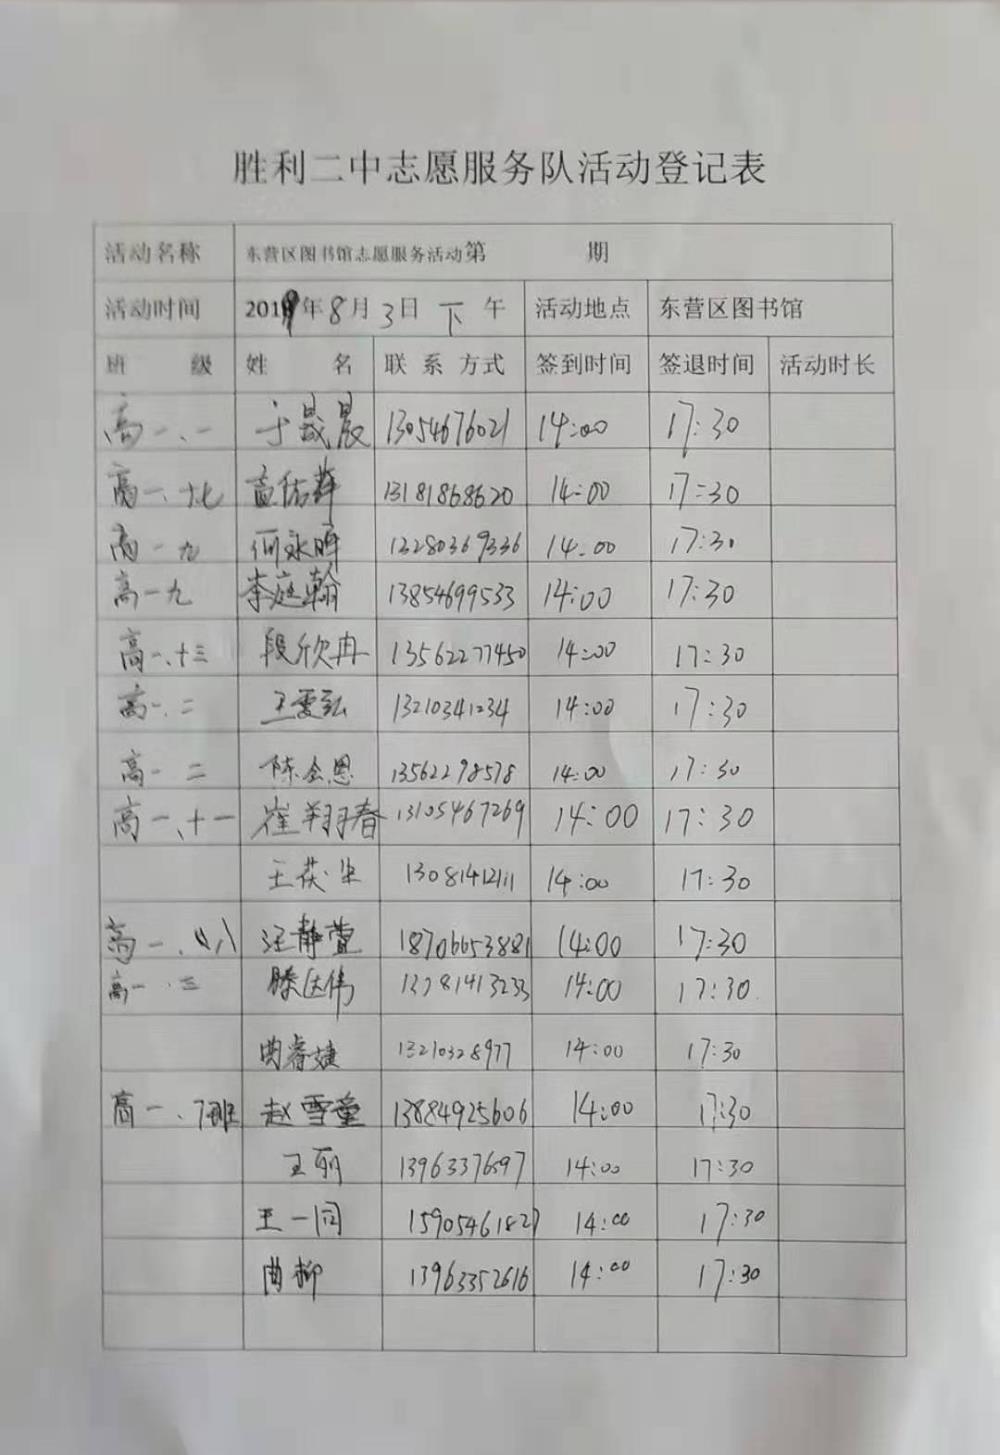 胜利二中志愿服务队活动登记表
活动名称 东营区图书馆志愿服务活动第 期
活动时间 2019年8月3日 下 午 活动地点 东营区图书馆
班 级 姓 名 联系方式 签到时间 签退时间 活动时长
高一、一 于晟晨 13054676021 14:00 17:30
高一、十七 13181868620 14:00 17:30
高一九 何永晖 13280369336 14:00 17:30
高一九 李庭翰 13854699533 14:00 17:30
高一、十三 段欣冉 13562277450 14:00 17:30
高一、二 王雯弘 13210341234 14:00 17:30
高一 二 陈会恩 13562298578 14:00 17:30
高一、十一 崔翔春 13105467269 14:00 17:30
王茯 13081412111 14:00 17:30
高一、 汪静萱 18706653881 14:00 17:30
高一、三 滕达伟 14:00 17:30
曲睿婕 13210328977 14:00 17:30
高一、7班 赵雪童 13884925606 14:00 17:30
王丽 14:00 17:30
王一同 15905461827 14:00 17:30
曲柳 13963352616 14:00 17:30